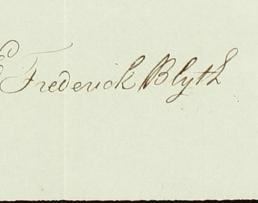 Frederick Blyth